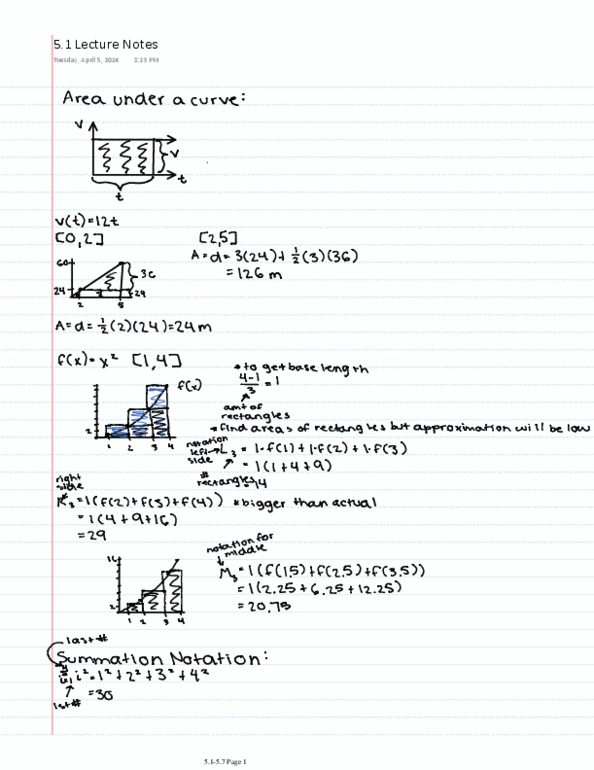 5.1 Lecture Notes
Tuesday, April 5, 2016 1:23 PM
Area under a curve:
v
v
t
t
v(t)=12t
[0,2]
[2,5]
A=d=3(24)+½(3)(36)
=126m
60
36
24
24
2
5
A=d=½(2)(24)=24m
f(x)=x² [1,4]
*to get base length
4-1/3=1
amt of
rectangles
f(x)
2
1 2 3 4
*find areas of rectangles but approximation will be low
notation
left→L₃=1·f(1)+1·f(2)+1·f(3)
side
=1(1+4+9)
#
rectangles
=14
right
side
R₃=1(f(2)+f(3)+f(4)) *bigger than actual
=1(4+9+16)
=29
notation for
middle
M₃=1(f(1.5)+f(2.5)+f(3.5))
=1(2.25+6.25+12.25)
=20.75
16
2
1 2 3 4
last#
Summation Notation:
i²=1²+2²+3²+4²
=30
1st#
5.1-5.7 Page 1